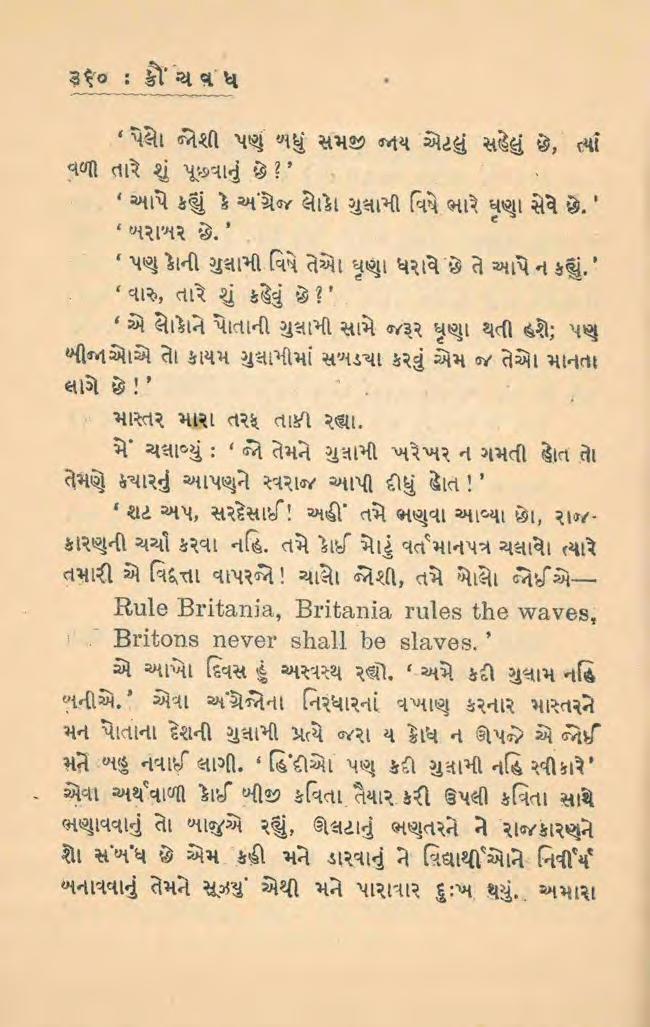 ૩૬૦ : ક્રૌંચવધ
‘ પેલો જોશી પણ બધું સમજી જાય એટલું સહેલું છે, ત્યાં
વળી તારે શું પૂછવાનું છે ? ’
‘ આપે કહ્યું કે અંગ્રેજ લોકો ગુલામી વિષે ભારે ઘૃણા સેવે છે. ’
‘ બરાબર છે. ’
‘ પણ કોની ગુલામી વિષે તેઓ ઘૃણા ધરાવે છે તે આપે ન કહ્યું. ’
‘ વારુ, તારે શું કહેવું છે ? ’
‘ એ લોકોને પોતાની ગુલામી સામે જરૂર ઘૃણા થતી હશે; પણ
બીજાઓએ તો કાયમ ગુલામીમાં સબડ્યા કરવું એમ જ તેઓ માનતા
લાગે છે ! ’
માસ્તર મારા તરફ તાકી રહ્યા.
મેં ચલાવ્યું : ‘ જો તેમને ગુલામી ખરેખર ન ગમતી હોત તો
તેમણે ક્યારનું આપણને સ્વરાજ આપી દીધું હોત ! ’
‘ શટ અપ, સરદેસાઈ ! અહીં તમે ભણવા આવ્યા છો, રાજ-
કારણની ચર્ચા કરવા નહિ. તમે કોઈ મોટું વર્તમાનપત્ર ચલાવો ત્યારે
તમારી એ વિદ્વત્તા વાપરજો ! ચાલો જોશી, તમે બોલો જોઈએ—
Rule Britania, Britania rules the waves,
Britons never shall be slaves. ’
એ આખો દિવસ હું અસ્વસ્થ રહ્યો. ‘ અમે કદી ગુલામ નહિ
બનીએ. ’ એવા અંગ્રેજોના નિરધારનાં વખાણ કરનાર માસ્તરને
મન પોતાના દેશની ગુલામી પ્રત્યે જરા ય ક્રોધ ન ઊપજે એ જોઈ
મને બહુ નવાઈ લાગી. ‘ હિંદીઓ પણ કદી ગુલામી નહિ સ્વીકારે ’
એવા અર્થવાળી કોઈ બીજી કવિતા તૈયાર કરી ઉપલી કવિતા સાથે
ભણાવવાનું તો બાજુએ રહ્યું, ઊલટાનું ભણતરને ને રાજકારણને
શો સંબંધ છે એમ કહી મને ડારવાનું ને વિદ્યાર્થીઓને નિર્વીર્ય
બનાવવાનું તેમને સૂઝ્યું એથી મને પારાવાર દુઃખ થયું. અમારા